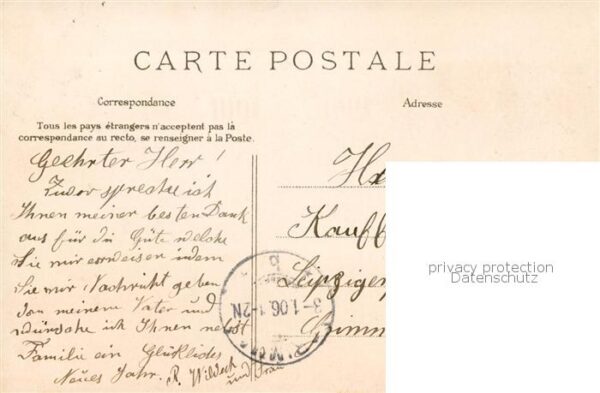 CARTE POSTALE
Correspondance
Adresse
Tous les pays étrangers n'acceptent pas la
correspondance au recto, se renseigner à la Poste.
Geehrter Herr!
Zuvor spreche ich
Ihnen meiner besten Dank
aus für die Güte welche
Sie mir erweisen indem
Sie mir Nachricht geben
von meinem Vater und
wünsche ich Ihnen nebst
Familie ein Glückliches
Neues Jahr. R. Wildeck
und Frau
Kauff
Leipziger
3 1.06.1-2N.
privacy protection
Datenschutz